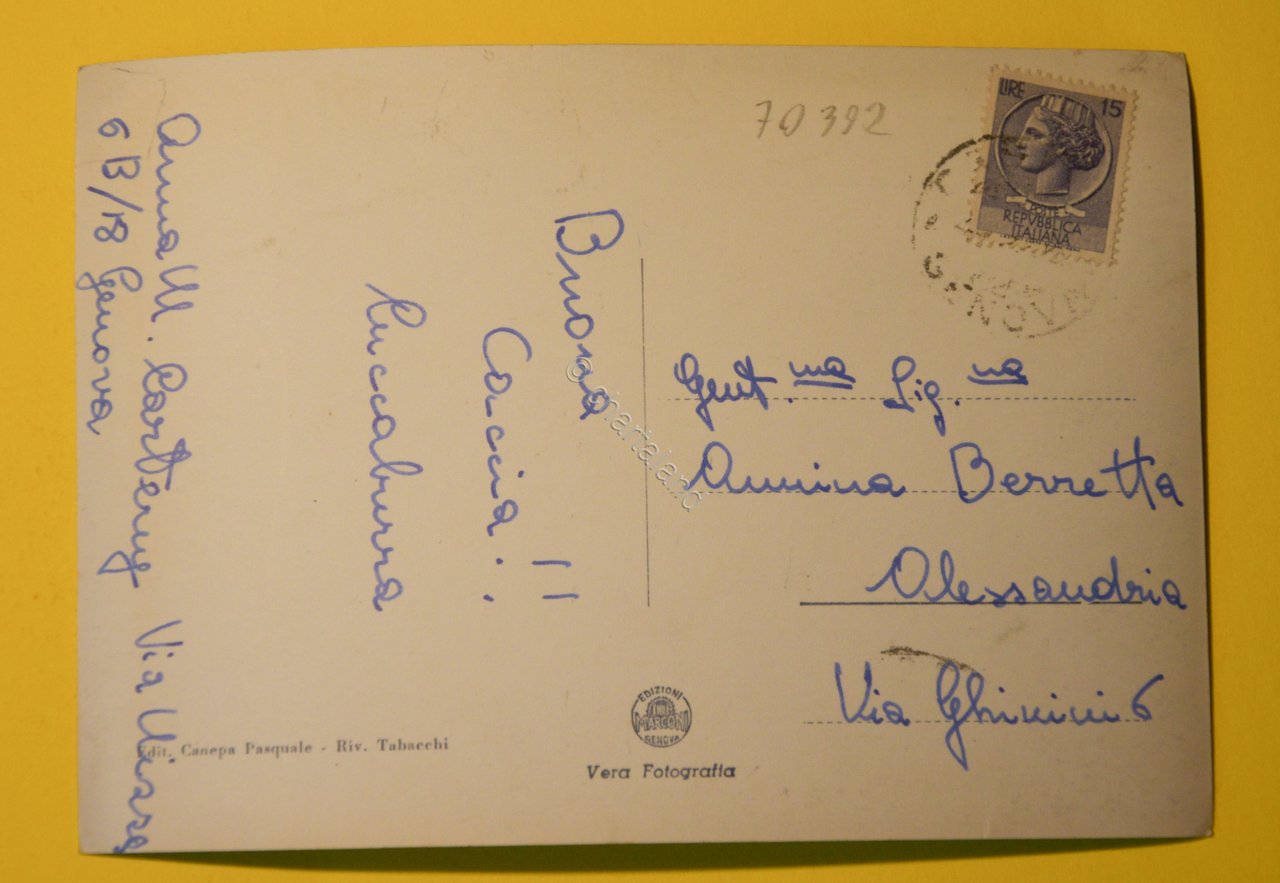 70392
LIRE 15
POSTE
REPVBBLICA
ITALIANA
GENOVA
Buona
Caccia!!
Cuccaburra
Anna M. Via
6B/18 Genova
Gent.ma Sig.na
Annina Berretta
Alessandria
Via Ghinini 6
Edit. Canepa Pasquale - Riv. Tabacchi
EDIZIONI
MARCONI
GENOVA
Vera Fotografia